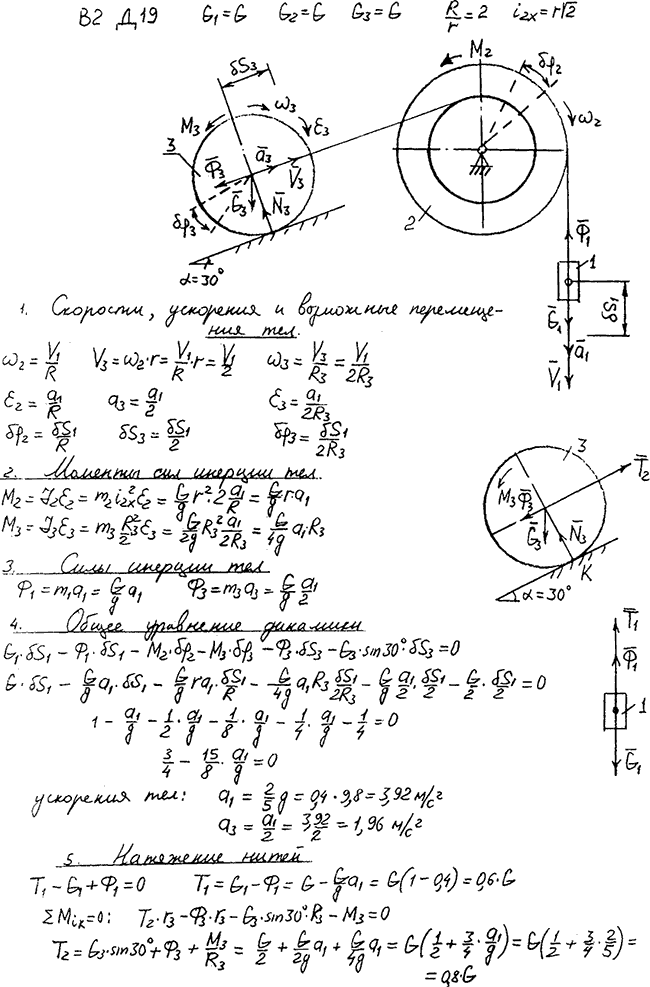 В2 Д19 G₁=G G₂=G G₃=G R/r=2 i₂ₓ=r√2
δS₃
M₂
δφ₂
ω₃
M₃
ε₃
ω₂
3
Φ̄₃
ā₃
V̄₃
Ḡ₃
N̄₃
δφ₃
2
α=30°
Φ̄₁
1
δS₁
Ḡ₁
ā₁
V̄₁
1. Скорости, ускорения и возможные перемеще-
ния тел.
ω₂=V₁/R V₃=ω₂·r=V₁/R·r=V₁/2 ω₃=V₃/R₃=V₁/2R₃
ε₂=a₁/R a₃=a₁/2 ε₃=a₁/2R₃
δφ₂=δS₁/R δS₃=δS₁/2 δφ₃=δS₁/2R₃
2. Моменты сил инерции тел
M₂=J₂ε₂=m₂i₂ₓ²ε₂=G/g r²·2 a₁/R=G/g ra₁
M₃=J₃ε₃=m₃ R₃²/2 ε₃=G/2g R₃² a₁/2R₃=G/4g a₁R₃
3
T̄₂
M₃
Φ̄₃
Ḡ₃
N̄₃
K
α=30°
3. Силы инерции тел
Φ₁=m₁a₁=G/g a₁ Φ₃=m₃a₃=G/g a₁/2
4. Общее уравнение динамики
G₁·δS₁-Φ₁·δS₁-M₂·δφ₂-M₃·δφ₃-Φ₃·δS₃-G₃·sin30°·δS₃=0
G·δS₁-G/g a₁·δS₁-G/g ra₁·δS₁/R-G/4g a₁R₃ δS₁/2R₃-G/g a₁/2·δS₁/2-G/2·δS₁/2=0
1-a₁/g-1/2·a₁/g-1/8·a₁/g-1/4·a₁/g-1/4=0
3/4-15/8·a₁/g=0
T̄₁
Φ̄₁
1
Ḡ₁
ускорения тел: a₁=2/5 g=0,4·9,8=3,92 м/с²
a₃=a₁/2=3,92/2=1,96 м/с²
5. Натяжение нитей
T₁-G₁+Φ₁=0 T₁=G₁-Φ₁=G-G/g a₁=G(1-0,4)=0,6·G
ΣMᵢₖ=0: T₂·r₃-Φ₃·r₃-G₃·sin30°·R₃-M₃=0
T₂=G₃·sin30°+Φ₃+M₃/R₃=G/2+G/2g a₁+G/4g a₁=G(1/2+3/4·a₁/g)=G(1/2+3/4·2/5)=
=0,8·G